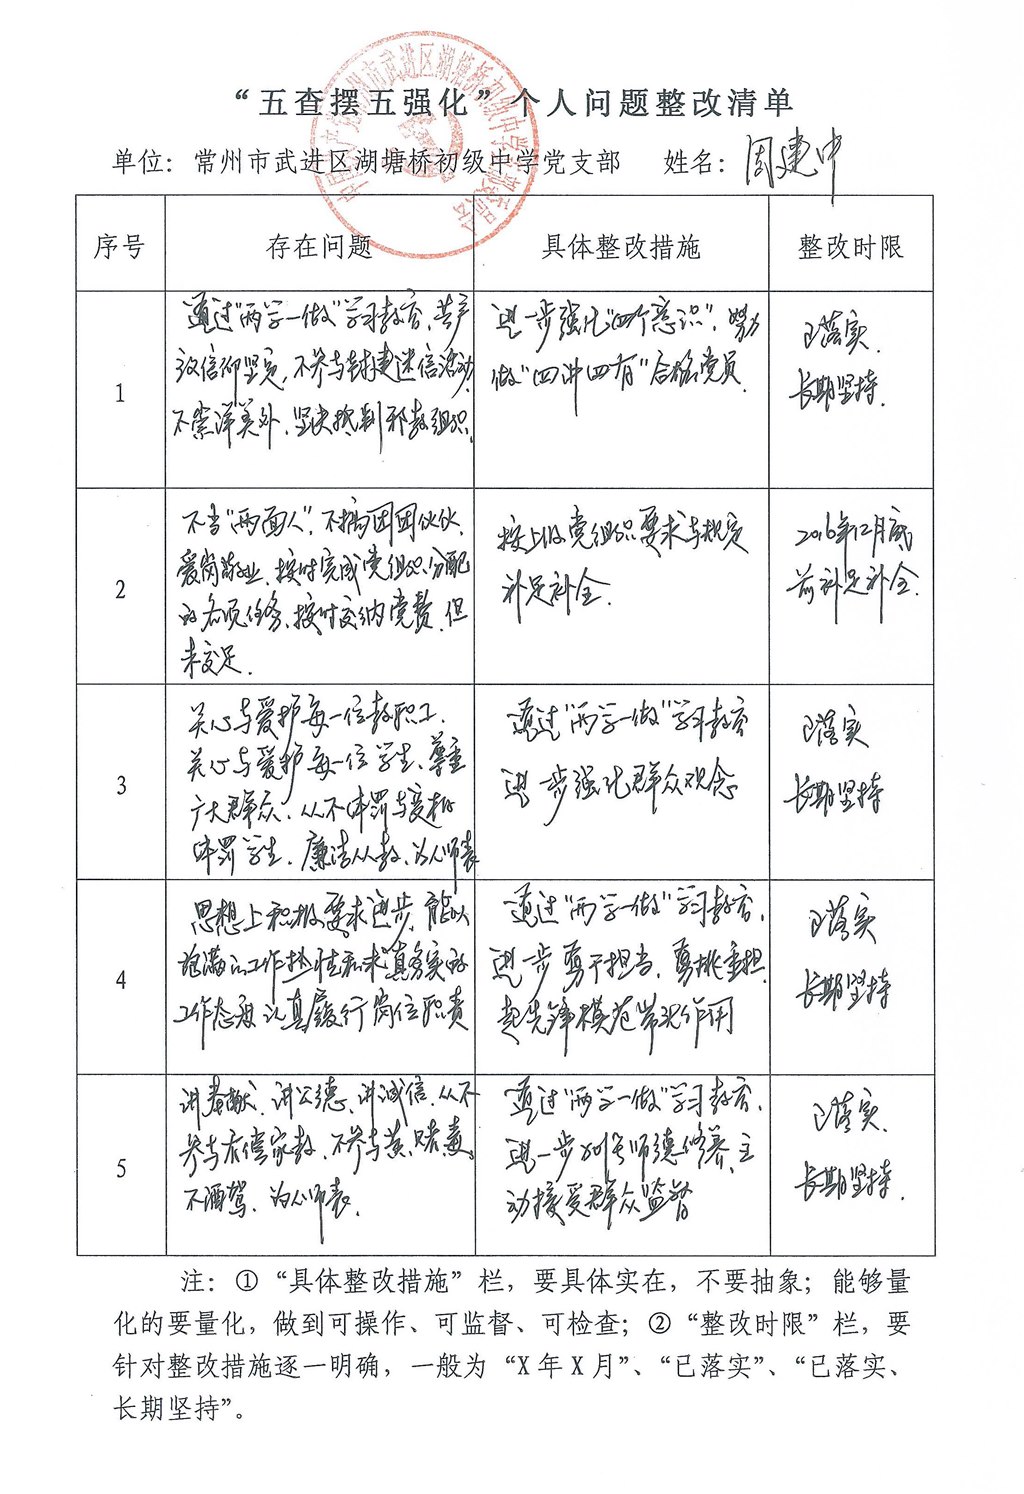 “五查摆五强化”个人问题整改清单
单位：常州市武进区湖塘桥初级中学党支部 姓名：周建中
序号 存在问题 具体整改措施 整改时限
1
通过“两学一做”学习教育，共产
政信仰坚定，不参与封建迷信活动，
不崇洋美外、坚决抵制邪教组织.
进一步强化“四个意识”，努力
做“四讲四有”合格党员.
已落实.
长期坚持.
2
不当“两面人”，不搞团团伙伙、
爱岗敬业、按时完成党组织分配
的各项任务、按时交纳党费，但
未交足.
按上级党组织要求与规定
补足补全.
2016年12月底
前补足补全.
3
关心与爱护每一位教职工.
关心与爱护每一位学生、尊重
广大群众，从不体罚与变相
体罚学生、廉洁从教、为人师表
通过“两学一做”学习教育
进一步强化群众观念
已落实
长期坚持
4
思想上积极要求进步，能以
饱满的工作热情和求真务实的
工作态度认真履行岗位职责
通过“两学一做”学习教育，
进一步勇于担当，勇挑重担
起先锋模范带头作用
已落实
长期坚持
5
讲奉献、讲公德、讲诚信、从不
参与有偿家教、不参与黄、赌、毒、
不酒驾、为人师表.
通过“两学一做”学习教育，
进一步加强师德修养、主
动接受群众监督
已落实.
长期坚持.
注：①“具体整改措施”栏，要具体实在，不要抽象；能够量
化的要量化，做到可操作、可监督、可检查；②“整改时限”栏，要
针对整改措施逐一明确，一般为“X年X月”、“已落实”、“已落实、
长期坚持”。